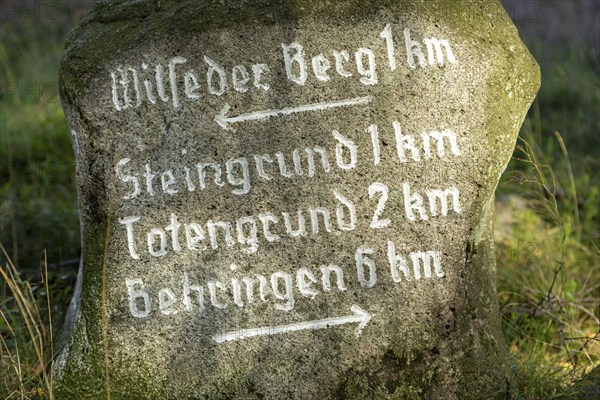 Wilseder Berg 1 km
←
Steingrund 1 km
Totengrund 2 km
Behringen 6 km
→